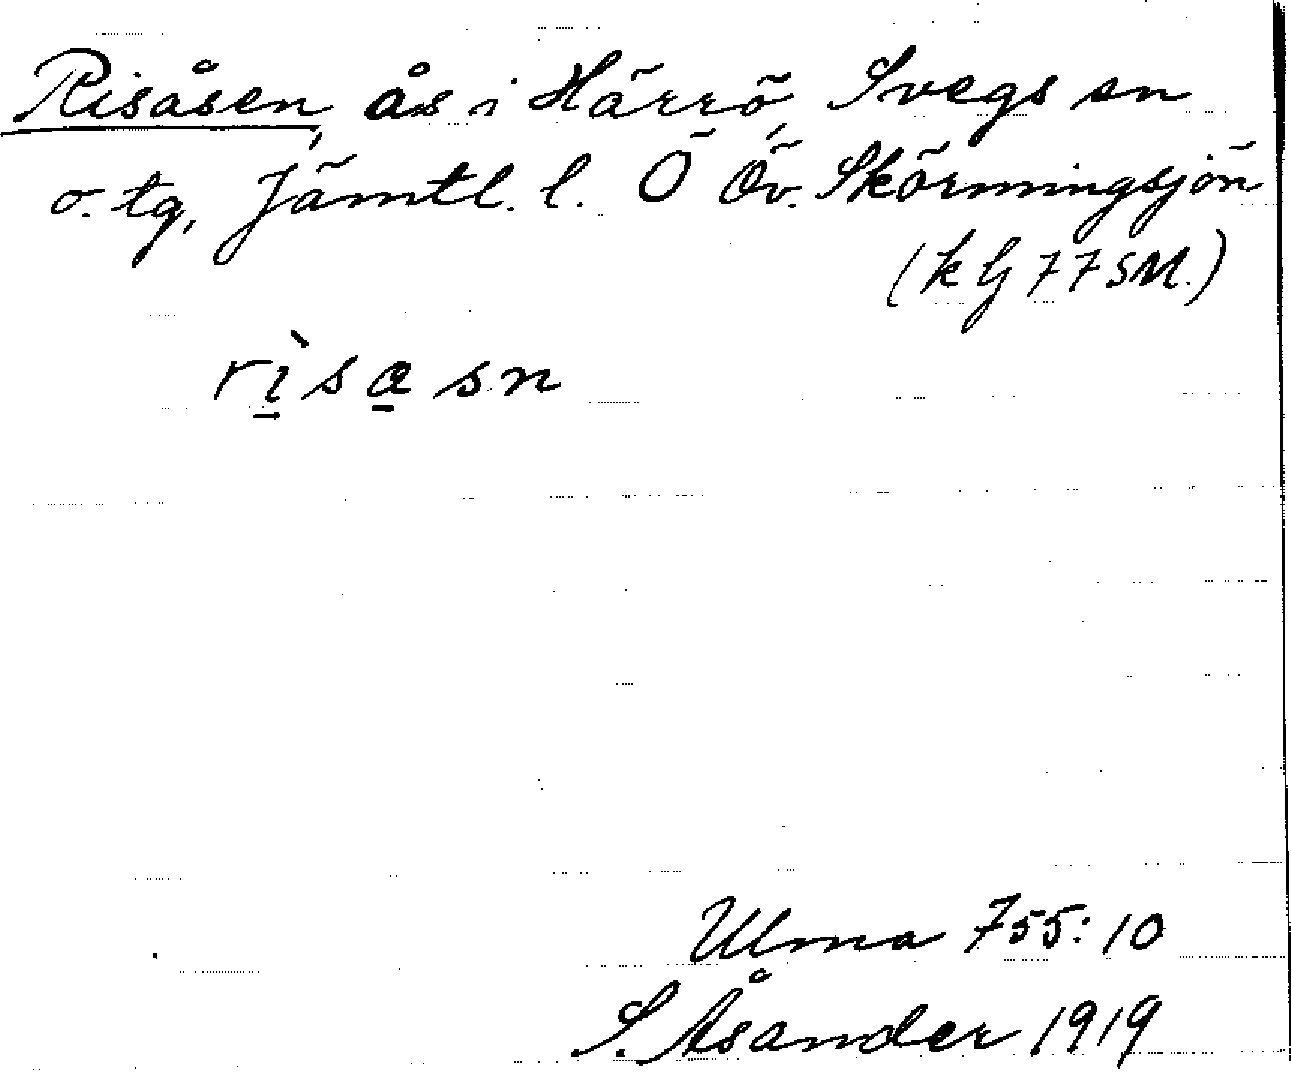 Risåsen, ås i Härrö, Svegs sn
o. tg, Jämtl. l. Ö Öv. Skörmningsjön
(k G 77 SM.)
rìsasn
Ulma 755:10
S. Åsander 1919